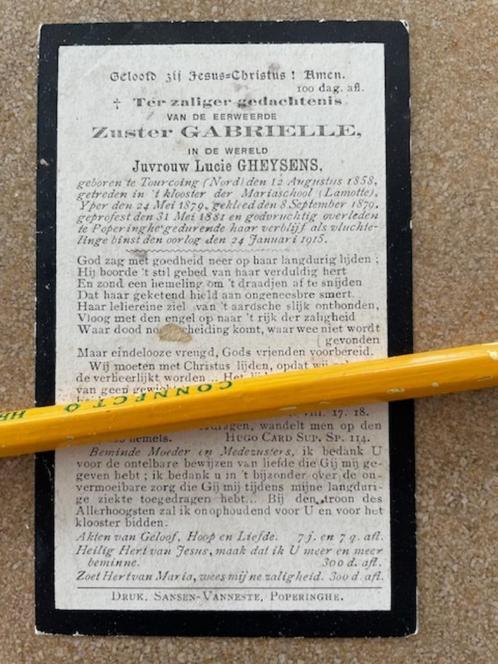 Geloofd zij Jesus=Christus ! Amen.
100 dag. afl.
† Ter zaliger gedachtenis
VAN DE EERWEERDE
Zuster GABRIELLE,
IN DE WERELD
Juvrouw Lucie GHEYSENS,
geboren te Tourcoing (Nord) den 12 Augustus 1858,
getreden in 't klooster der Mariaschool (Lamotte),
Yper den 24 Mei 1879, gekleed den 8 September 1879.
geprofest den 31 Mei 1881 en godvruchtig overleden
te Poperinghe gedurende haar verblijf als vluchte-
linge binst den oorlog den 24 Januari 1915.
God zag met goedheid neer op haar langdurig lijden ;
Hij hoorde 't stil gebed van haar verduldig hert
En zond een hemeling om 't draadjen af te snijden
Dat haar geketend hield aan ongeneesbre smert.
Haar leliereine ziel van 't aardsche slijk ontbonden,
Vloog met den engel op naar 't rijk der zaligheid
Waar dood noch scheiding komt, waar wee niet wordt
(gevonden
Maar eindelooze vrengd, Gods vrienden voorbereid.
Wij moeten met Christus lijden, opdat wij
de verheerlijkt worden ... Het lijden
van geen
17. 18.
wandelt men op den
hemels. HUGO CARD SUP. SP. 114.
Beminde Moeder in Medezusters, ik bedank U
voor de ontelbare bewijzen van liefde die Gij mij ge
geven hebt ; ik bedank u in 't bijzonder over de on-
vermoeibare zorg die Gij mij tijdens mijne langduri-
ge ziekte toegedragen hebt... Bij den troon des
Allerhoogsten zal ik onophoudend voor U en voor het
klooster bidden.
Akten van Geloof, Hoop en Liefde. 7 j. en 7 q. afl.
Heilig Hert van Jesus, maak dat ik U meer en meer
beminne. 300 d. afl.
Zoet Hert van Maria, wees mijne zaligheid. 300 d. afl.
DRUK. SANSEN-VANNESTE, POPERINGHE.
CONNECT O
HB